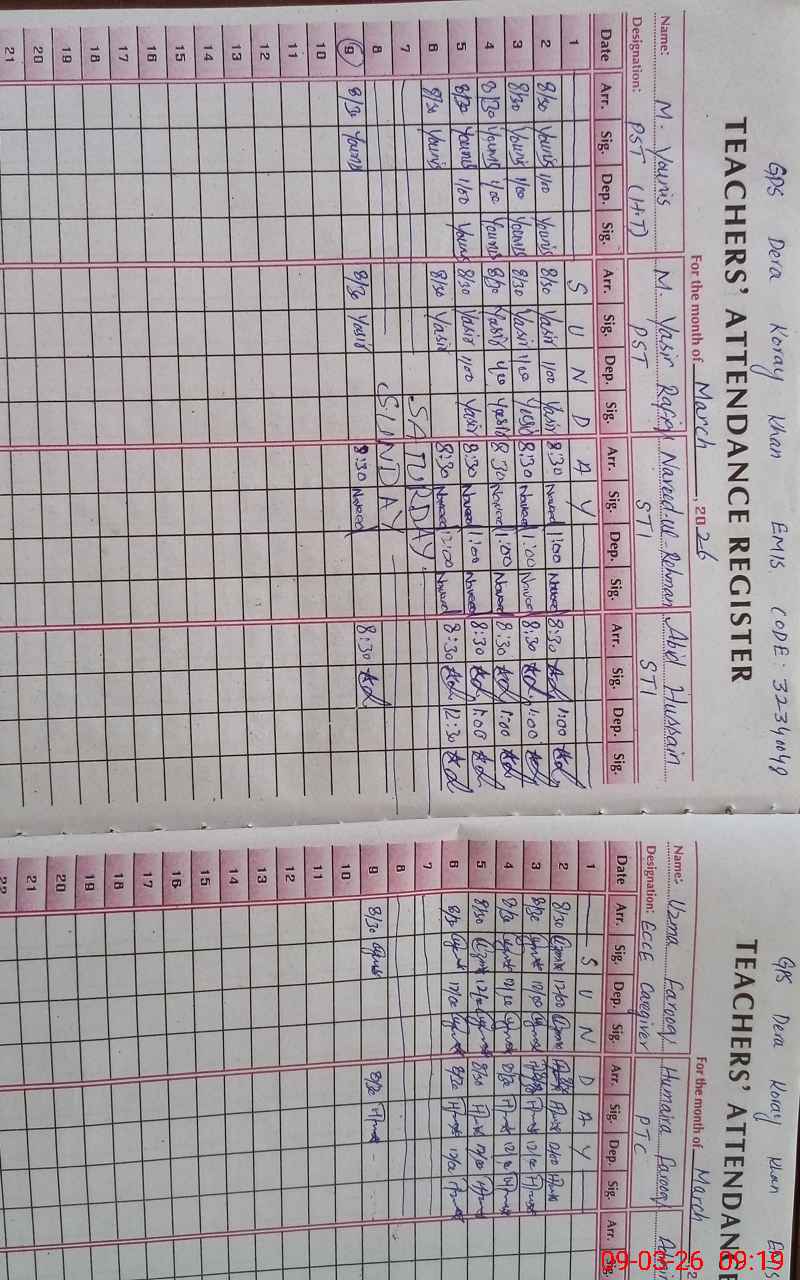 GPS Dera Koray Khan EMIS CODE: 32340048
TEACHERS' ATTENDANCE REGISTER
For the month of March, 2026
Name: M. Younis M. Yasir Rafiq Naveed ul Rehman Abid Hussain
Designation: PST (H.T) PST STI STI
Date Arr. Sig. Dep. Sig. Arr. Sig. Dep. Sig. Arr. Sig. Dep. Sig. Arr. Sig. Dep. Sig.
1 S U N D A Y
2 8/30 Younis 1/00 Younis 8/30 Yasir 1/00 Yasir 8:30 Naveed 1:00 Naveed 8:30 1:00
3 8/30 Younis 1/00 Younis 8/30 Yasir 1/00 Yasir 8:30 Naveed 1:00 Naveed 8:30 1:00
4 8/30 Younis 1/00 Younis 8/30 Yasir 1/00 Yasir 8:30 Naveed 1:00 Naveed 8:30 1:00
5 8/30 Younis 1/00 Younis 8/30 Yasir 1/00 Yasir 8:30 Naveed 1:00 Naveed 8:30 1:00
6 8/30 Younis 8/30 Yasir 8:30 Naveed Naveed 8:30 12:30
7 SATURDAY
8 SUNDAY
9 8/30 Younis 8/30 Yasir 8:30 Naveed 8:30
10
11
12
13
14
15
16
17
18
19
20
21
GPS Dera Koray Khan EMIS
TEACHERS' ATTENDANCE
For the month of March
Name: Uzma Farooq Humaira Farooq
Designation: ECCE Caregiver PTC
Date Arr. Sig. Dep. Sig. Arr. Sig. Dep. Sig. Arr. Sig.
1 S U N D A Y
2 8/30 Uzma 12/00 Uzma 12/00
3 8/30 12/00 12/00
4 8/30 12/00 8/30 12/00
5 8/30 Uzma 12/00 8/30 12/00
6 8/30 12/00 8/30 12/00
7
8
9 8/30 8/30
10
11
12
13
14
15
16
17
18
19
20
21
22
09-03-26 09:19